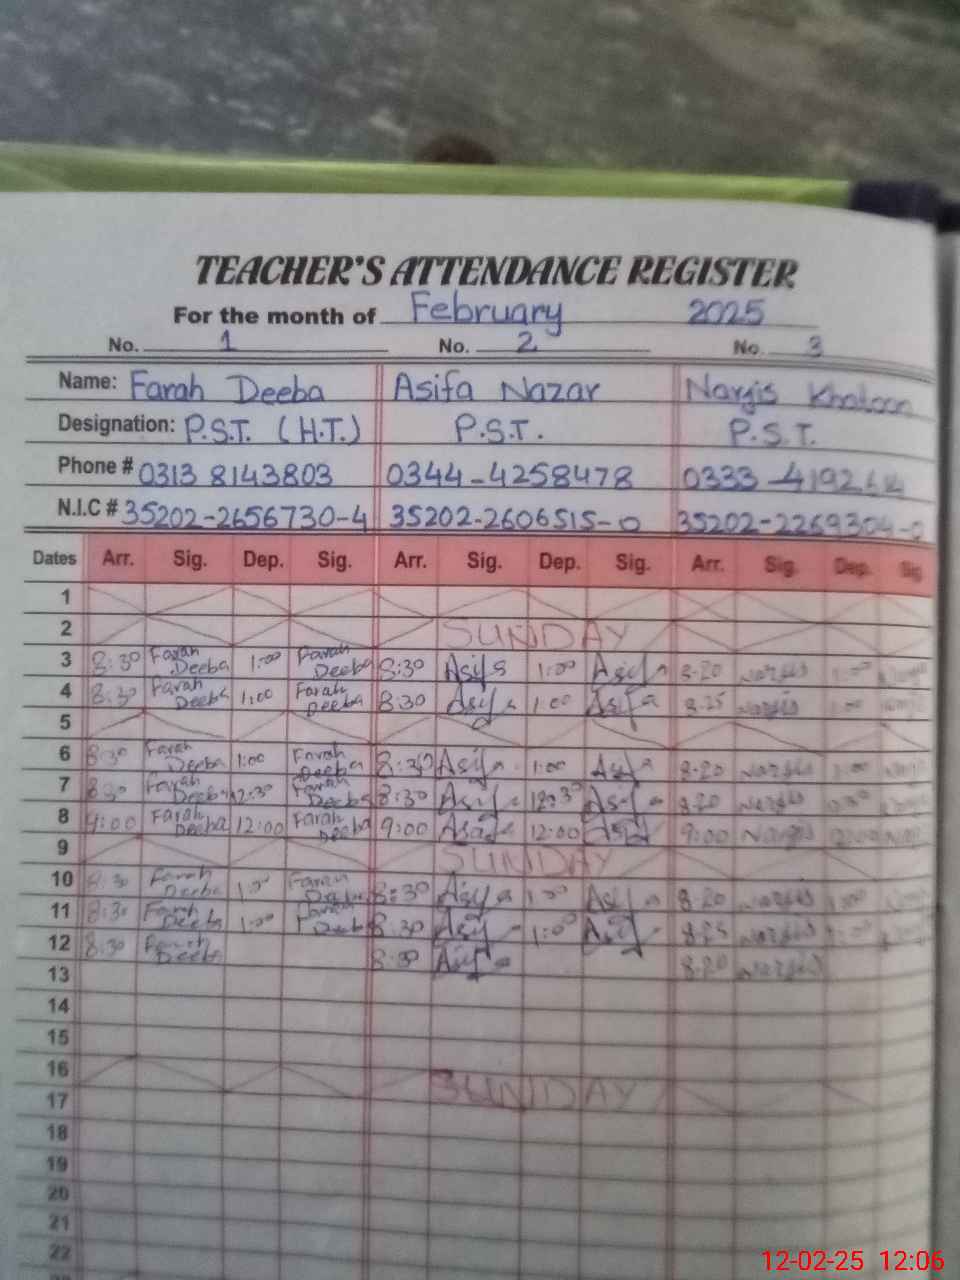 TEACHER'S ATTENDANCE REGISTER
For the month of February 2025
No. 1 No. 2 No. 3
Name: Farah Deeba Asifa Nazar Nargis Khatoon
Designation: P.S.T. (H.T.) P.S.T. P.S.T.
Phone # 0313 8143803 0344-4258478 0333-4192
N.I.C # 35202-2656730-4 35202-2606515-0 35202-2269304-0
Dates Arr. Sig. Dep. Sig. Arr. Sig. Dep. Sig. Arr. Sig. Dep. Sig
1
2 SUNDAY
3 8:30 Farah Deeba 1:00 Farah Deeba 8:30 Asifa 1:00 Asifa 8-20 Nargis 1:00
4 8:30 Farah Deeba 1:00 Farah Deeba 8:30 Asifa 1:00 Asifa 8-25 Nargis 1:00
5
6 8:30 Farah Deeba 1:00 Farah Deeba 8:30 Asifa 1:00 Asifa 8-20 Nargis 1:00
7 8:30 Farah Deeba 12:30 Farah Deeba 8:30 Asifa 12:30 Asifa 8-20 Nargis
8 9:00 Farah Deeba 12:00 Farah Deeba 9:00 Asifa 12:00 Asifa 9:00 Nargis 12:00
9 SUNDAY
10 8:30 Farah Deeba 1:00 Farah Deeba 8:30 Asifa 1:00 Asifa 8-20 Nargis 1:00
11 8:30 Farah Deeba 1:00 Farah Deeba 8:30 Asifa 1:00 Asifa 8-25 Nargis 1:00
12 8:30 Farah Deeba 8:30 Asifa 8-20 Nargis
13
14
15
16 SUNDAY
17
18
19
20
21
22
12-02-25 12:06